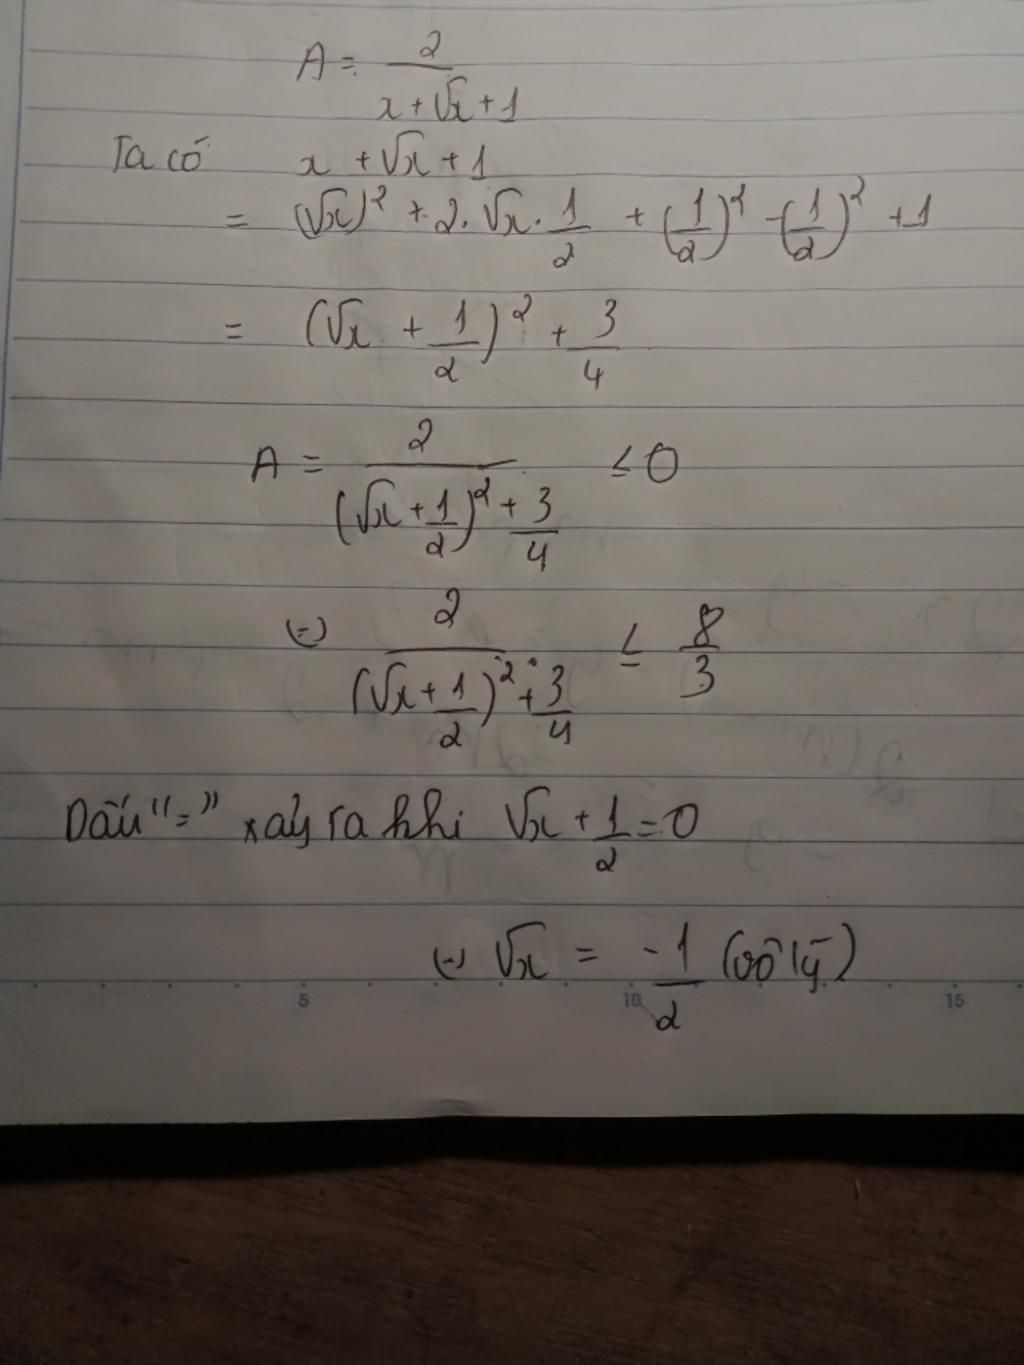 A = 2/(x + √x + 1)
Ta có x + √x + 1
= (√x)² + 2.√x.1/2 + (1/2)² - (1/2)² + 1
= (√x + 1/2)² + 3/4
A = 2/((√x + 1/2)² + 3/4) ≤ 0
(=) 2/((√x + 1/2)² + 3/4) ≤ 8/3
Dấu "=" xảy ra khi √x + 1/2 = 0
(-) √x = -1/2 (vô lý)
5 10 15